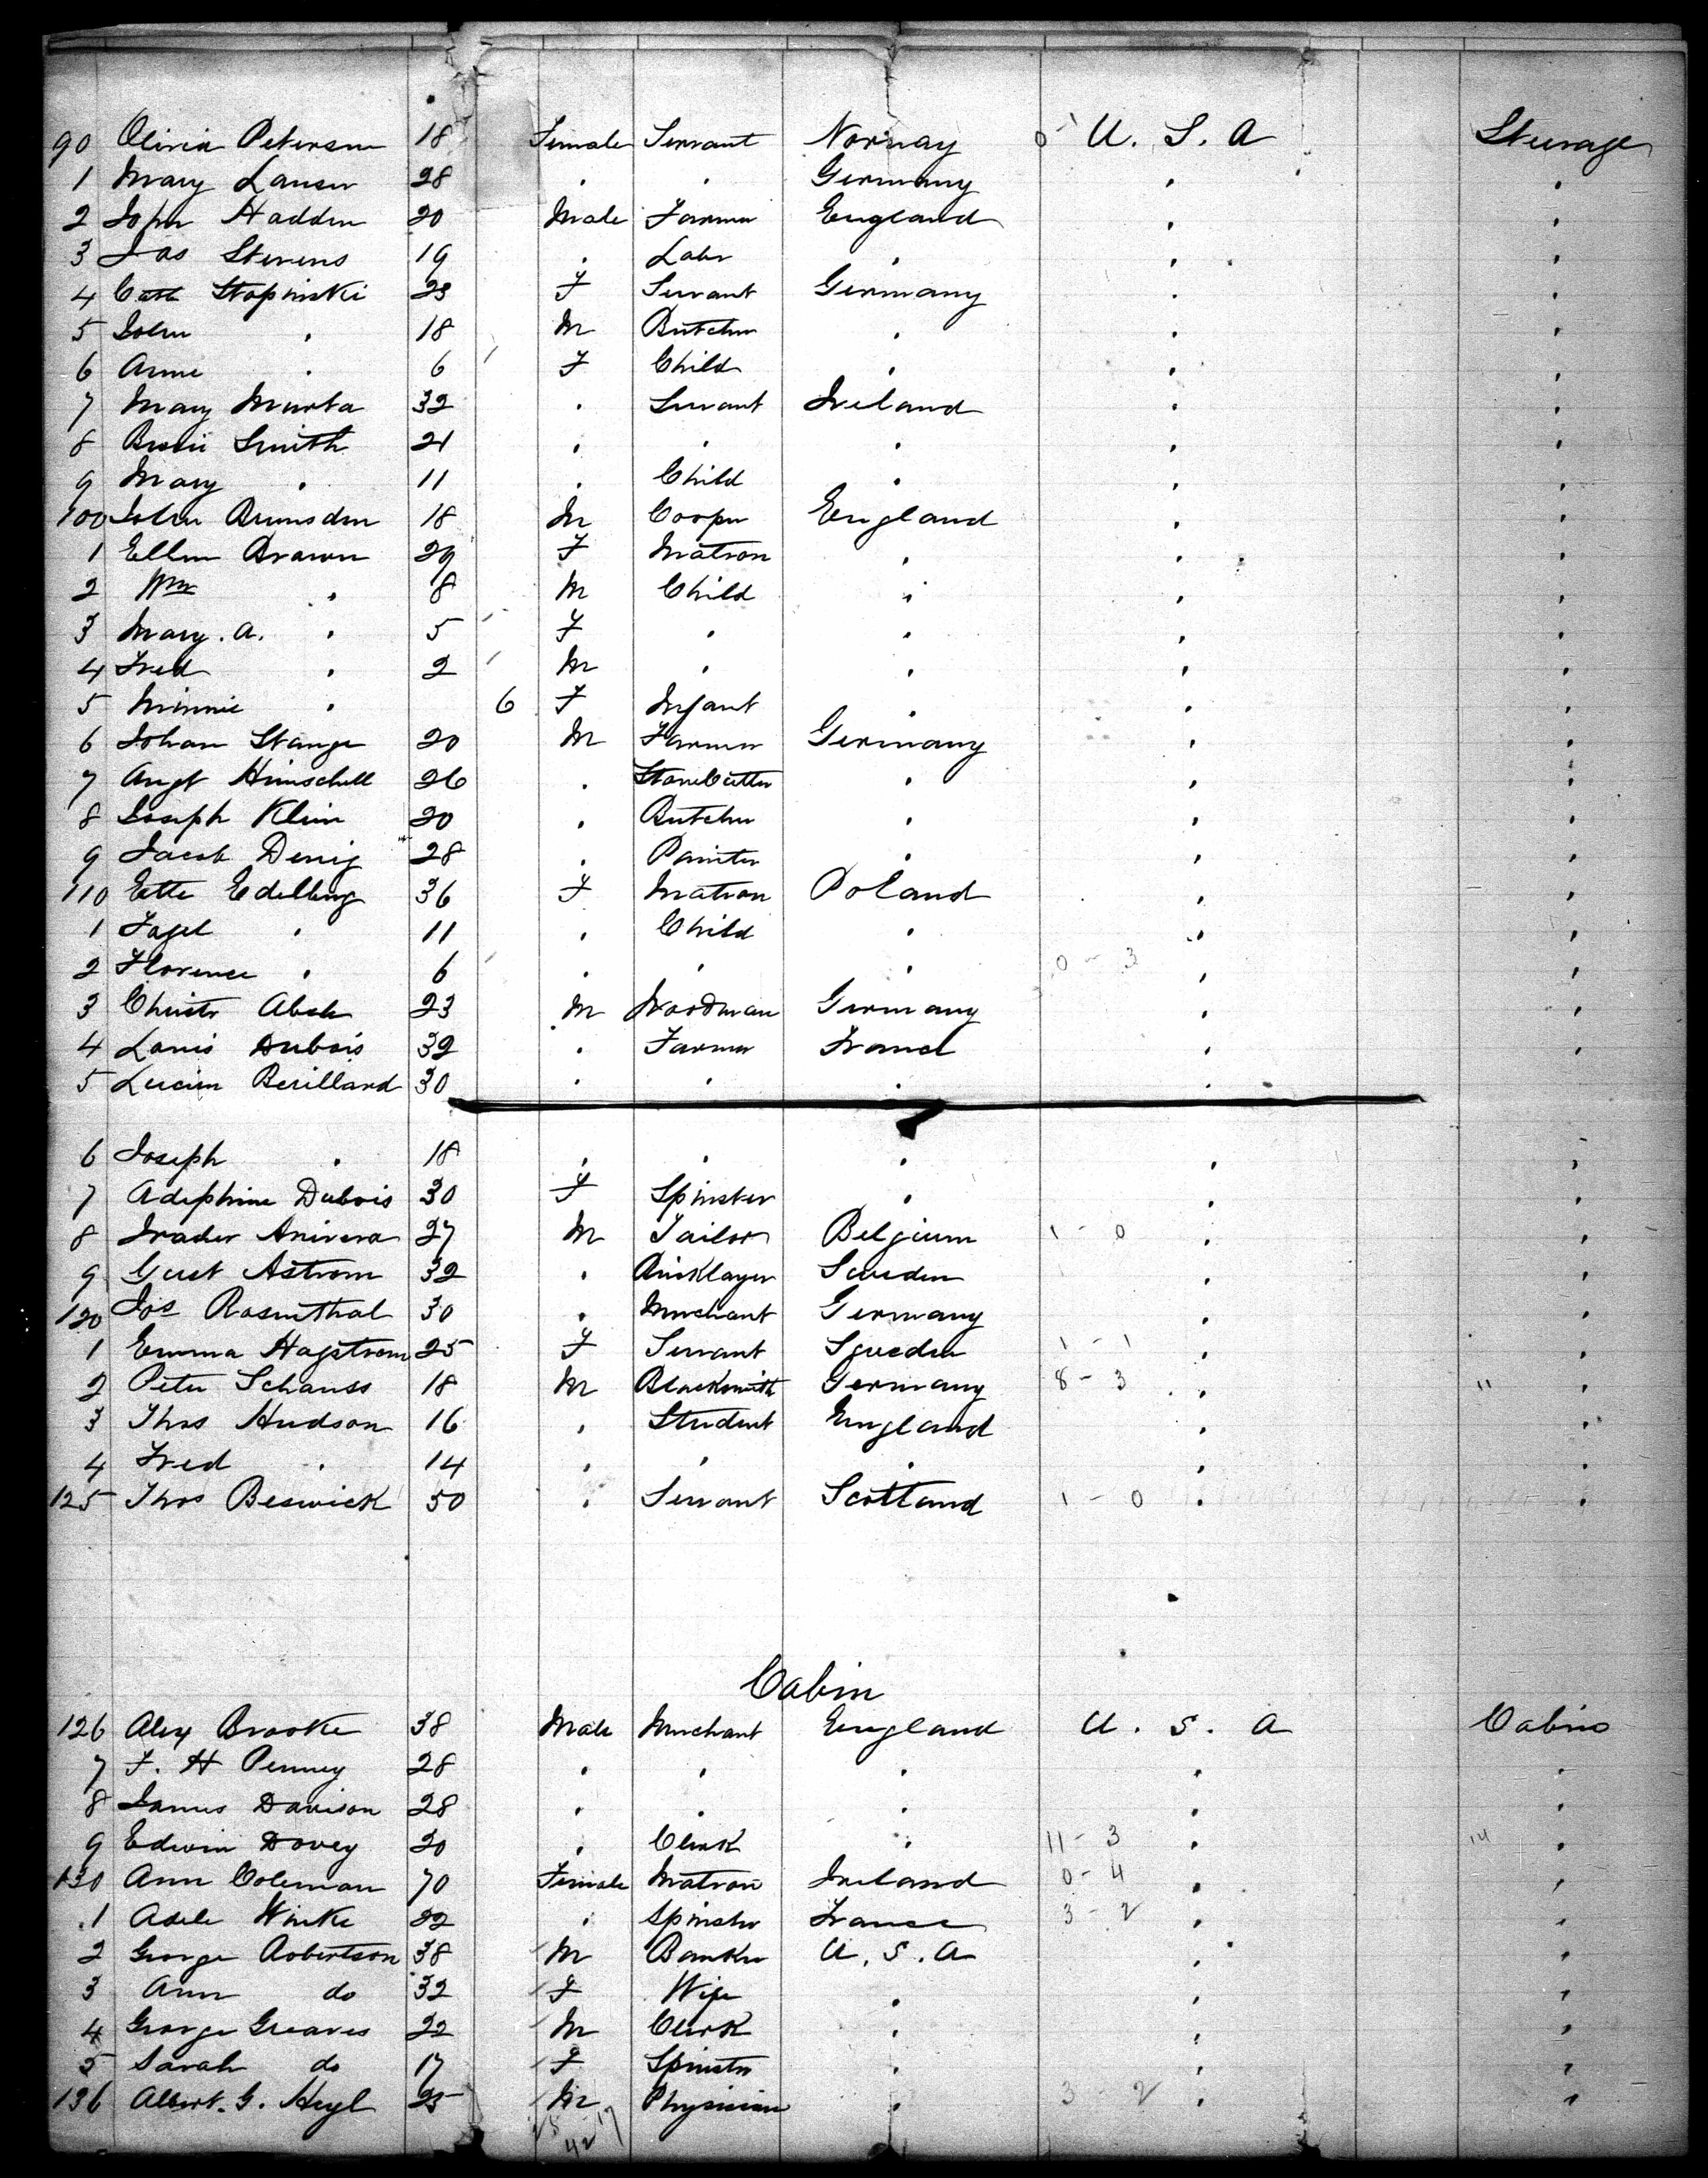 90 Olivia Peterson 18 Female Servant Norway 0 - 1 U. S. A Steerage
1 Mary Lanser 28 " " Germany " "
2 John Hadden 20 Male Farmer England " "
3 Jas Stevens 19 " Labr " " "
4 Cath Stopinski 23 F Servant Germany " "
5 John " 18 M Butcher " " "
6 Anne " 6 F Child " " "
7 Mary Murta 32 " Servant Ireland " "
8 Smith 21 " " " " "
9 Mary " 11 " Child " " "
100 John Brunsden 18 M Cooper England " "
1 Ellen Brown 29 F Matron " " "
2 Wm " 8 M Child " " "
3 Mary. A. " 5 F " " " "
4 Fred " 2 M " " " "
5 Minnie " 6 F Infant " " "
6 Johan Stange 20 M Farmer Germany " "
7 Augt Himschell 26 " Stonecutter " " "
8 Joseph Klein 20 " Butcher " " "
9 Jacob Denig 28 " Painter " " "
110 Ette Edelberg 36 F Matron Poland " "
1 Fagel " 11 " Child " " "
2 Florence " 6 " " " 0 - 3 " "
3 Christr Abele 23 M Woodman Germany " "
4 Louis Dubois 32 " Farmer France " "
5 Lucien Berillard 30 " " " "
6 Joseph " 18 " " " " "
7 Adephine Dubois 30 F Spinster " " "
8 27 M Tailor Belgium 1 - 0 " "
9 Gust Astrom 32 " Bricklayer Sweden " "
120 Jos Rosenthal 30 " Merchant Germany " "
1 Emma Hagstrom 25 F Servant Sweden 1 - 1 " "
2 Peter Schauss 18 M Blacksmith Germany 8 - 3 " 11 "
3 Thos Hudson 16 " Student England " "
4 Fred " 14 " " " " "
125 Thos Beswick 50 " Servant Scotland 1 - 0 " "
Cabin
126 Alex Brooke 38 Male Merchant England U. S. A Cabin
7 F. H Penney 28 " " " " "
8 James Davison 28 " " " " "
9 Edwin Dovey 20 " Clerk " 11 - 3 " 14 "
130 Ann Coleman 70 Female Matron Ireland 0 - 4 " "
1 Adele Winke 32 " Spinster France 3 - 2 " "
2 George Robertson 38 M Banker U. S. A " "
3 Ann do 32 F Wife " " "
4 George Greaves 22 M Clerk " " "
5 Sarah do 17 F Spinster " " "
136 Albert. G. Heyl 25 M Physician " 3 - 2 " "
42 17